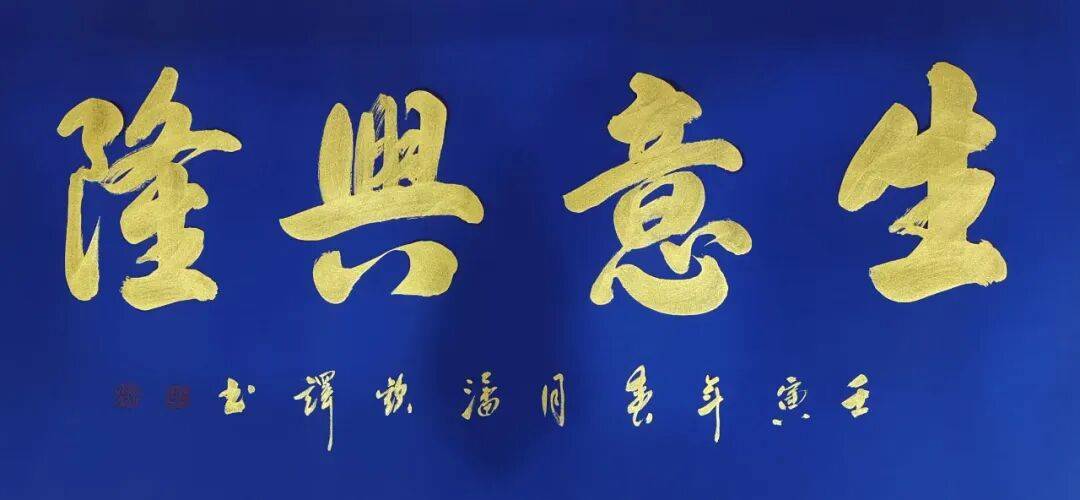 生意興隆
壬寅年春月潘欽譯书